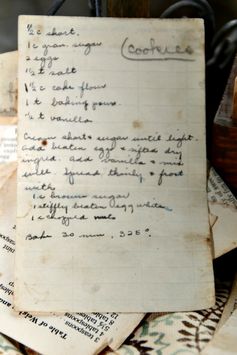 ½ c short.
1 c gran. sugar
(Cookies
2 eggs
½ t salt
1½ c cake flour
1 t baking pow.
½ t vanilla
Cream short & sugar until light.
add beaten egg & sifted dry
ingred. add vanilla & mix
well. Spread thinly & frost
with
1 c brown sugar
1 stiffly beaten egg white
1 c chopped nuts
Bake 30 min, 325°.
Table of Weig